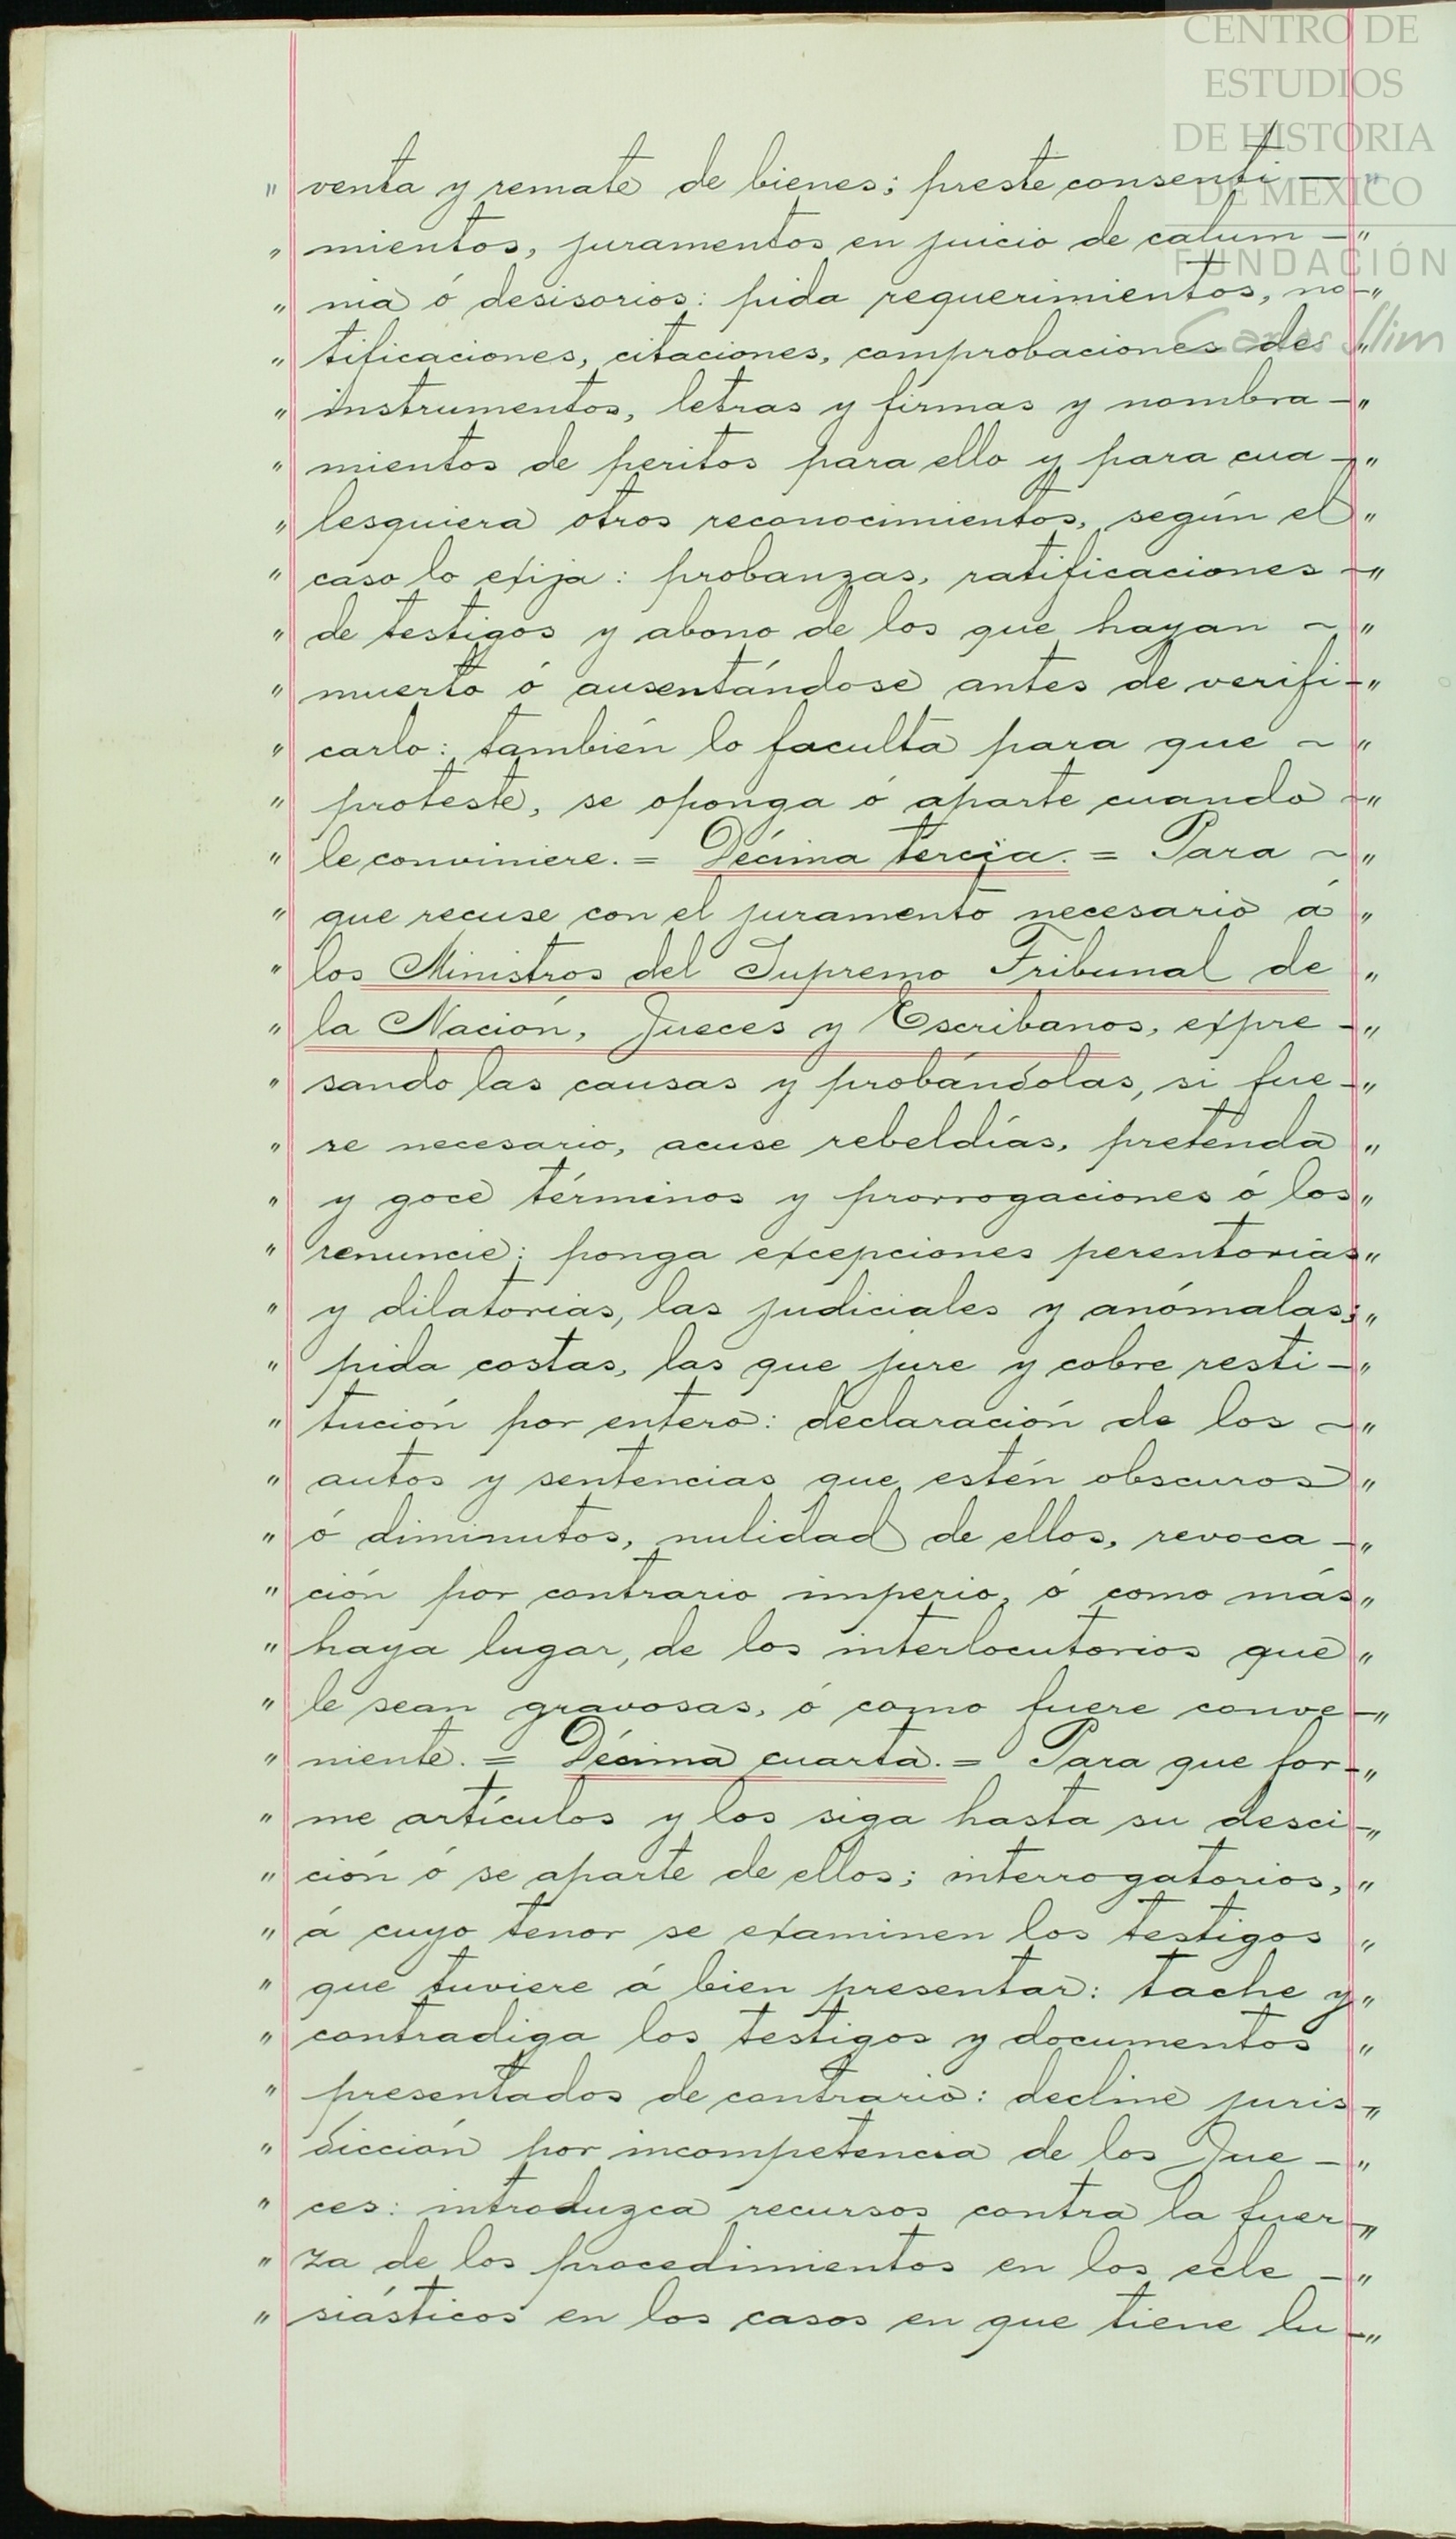 CENTRO DE
ESTUDIOS
DE HISTORIA
DE MÉXICO
FUNDACIÓN
Carlos Slim
" venta y remate de bienes; preste consenti - "
" mientos, juramentos en juicio de calum - "
" nia ó desisorios: pida requerimientos, no - "
" tificaciones, citaciones, comprobaciones de "
" instrumentos, letras y firmas y nombra - "
" mientos de peritos para ello y para cua - "
" lesquiera otros reconocimientos, según el "
" caso lo exija: probanzas, ratificaciones - "
" de testigos y abono de los que hayan ~ "
" muerto ó ausentándose antes de verifi - "
" carlo: también lo faculta para que ~ "
" proteste, se oponga ó aparte cuando ~ "
" le conviniere. = Décima tercia. = Para ~ "
" que recuse con el juramento necesario á "
" los Ministros del Supremo Tribunal de "
" la Nación, Jueces y Escribanos, expre - "
" sando las causas y probándolas, si fue - "
" re necesario, acuse rebeldías, pretenda "
" y goce términos y prorrogaciones ó los "
" renuncie; ponga excepciones perentorias "
" y dilatorias, las judiciales y anómalas; "
" pida costas, las que jure y cobre resti - "
" tución por entero: declaración de los ~ "
" autos y sentencias que estén obscuros "
" ó diminutos, nulidad de ellos, revoca - "
" ción por contrario imperio, ó como más "
" haya lugar, de los interlocutorios que "
" le sean gravosas, ó como fuere conve - "
" niente. = Décima cuarta. = Para que for - "
" me artículos y los siga hasta su desci - "
" ción ó se aparte de ellos; interrogatorios, "
" á cuyo tenor se examinen los testigos "
" que tuviere á bien presentar: tache y "
" contradiga los testigos y documentos "
" presentados de contrario: decline juris - "
" dicción por incompetencia de los Jue - "
" ces: introduzca recursos contra la fuer - "
" za de los procedimientos en los ecle - "
" siásticos en los casos en que tiene lu - "